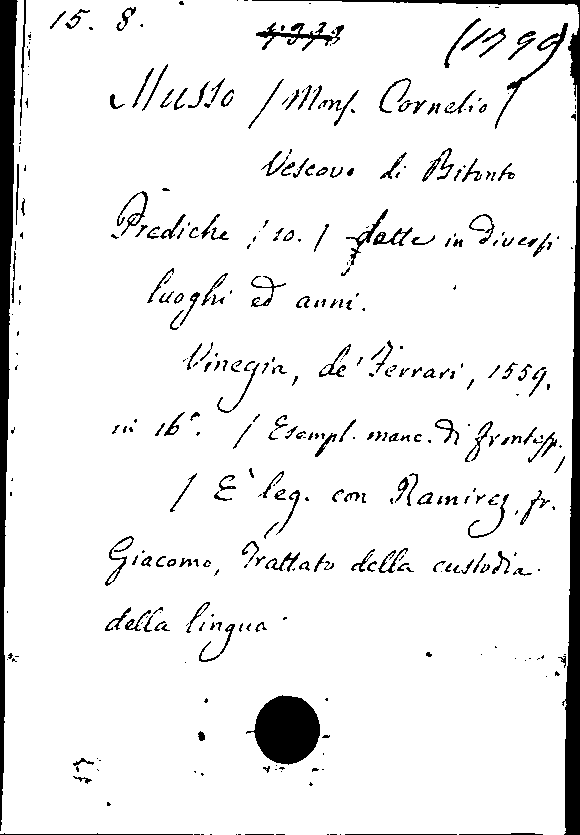 15. 8. (1799)
Musso / Mons. Cornelio /
Vescovo di Bitonto
Prediche / 10. / fatte in diversi
luoghi ed anni.
Vinegia, de' Ferrari, 1559.
in 16°. / Esempl. manc. di frontesp.
/ E' leg. con Ramirez, fr.
Giacomo, Trattato della custodia
della lingua